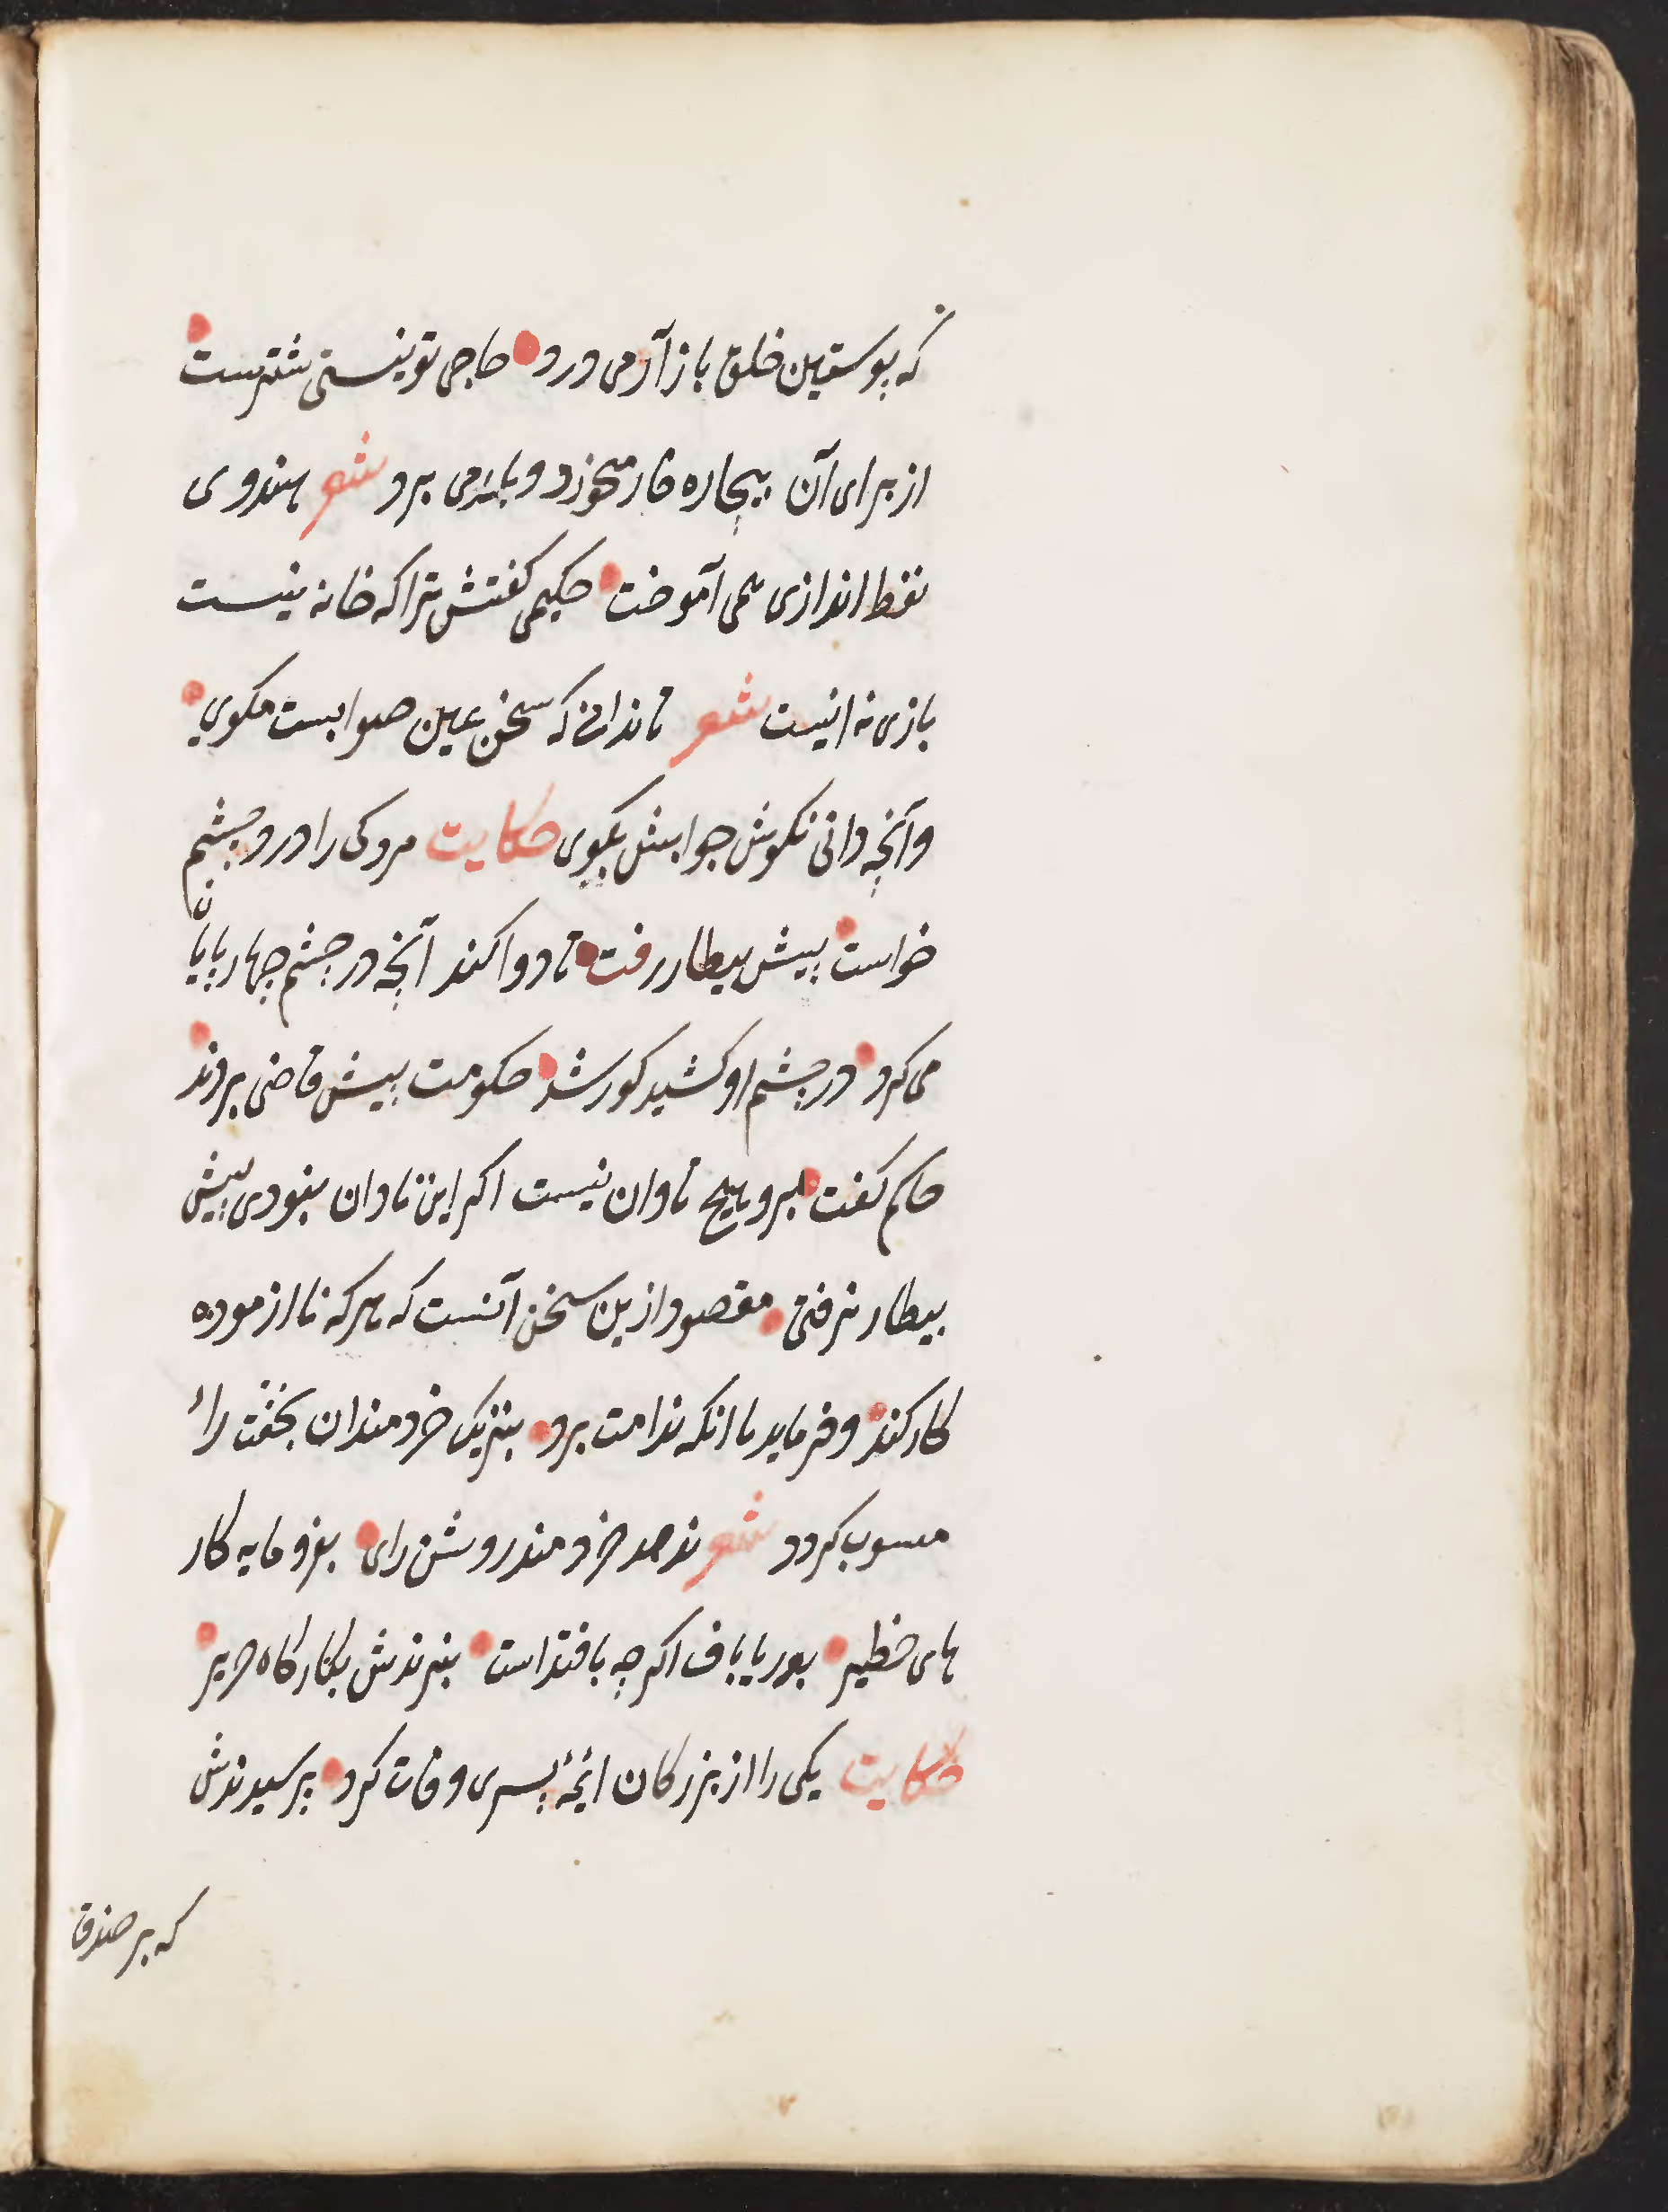 که پوستین خلق بازآر می درد حاجی تو نیستی شترست
از برای آن بیچاره خار میخورد و بار می برد شعر هندوی
نفط اندازی همی آموخت حکیمی گفتش ترا که خانه نیست
بازی نه اینست شعر تا ندانی که سخن عین صوابست مکوی
وآنچه دانی نکوش جوابش بکوی حکایت مردکی را درد چشم
خواست پیش بیطار رفت تا دوا کند آنچه در چشم چهارپایان
می کرد در چشم او کشید کور شد حکومت پیش قاضی بردند
حاکم گفت برو هیچ تاوان نیست اکر این نادان نبودی پیش
بیطار نرفتی مقصود ازین سخن آنست که هرکه ناازموده
کار کند و فرماید با انکه ندامت برد بنزیک خردمندان بخفت رای
منسوب کردد شعر ندهد خردمند روشن رای بفرومایه کار
های خطیر بوریا باف اکرچه بافنداست نبرندش بکارکاه حریر
حکایت یکی را از بزرکان ایٔمهٔ پسری وفات کرد پرسیدندش
که بر صندوق